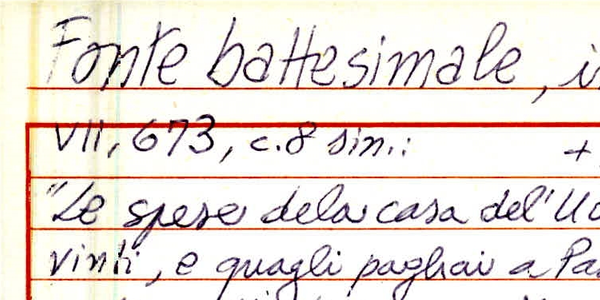 Fonte battesimale, i
VII, 673, c. 8 sin.: +
"Le spese dela casa del'Uo
vinti, e quagli paghai a Pa